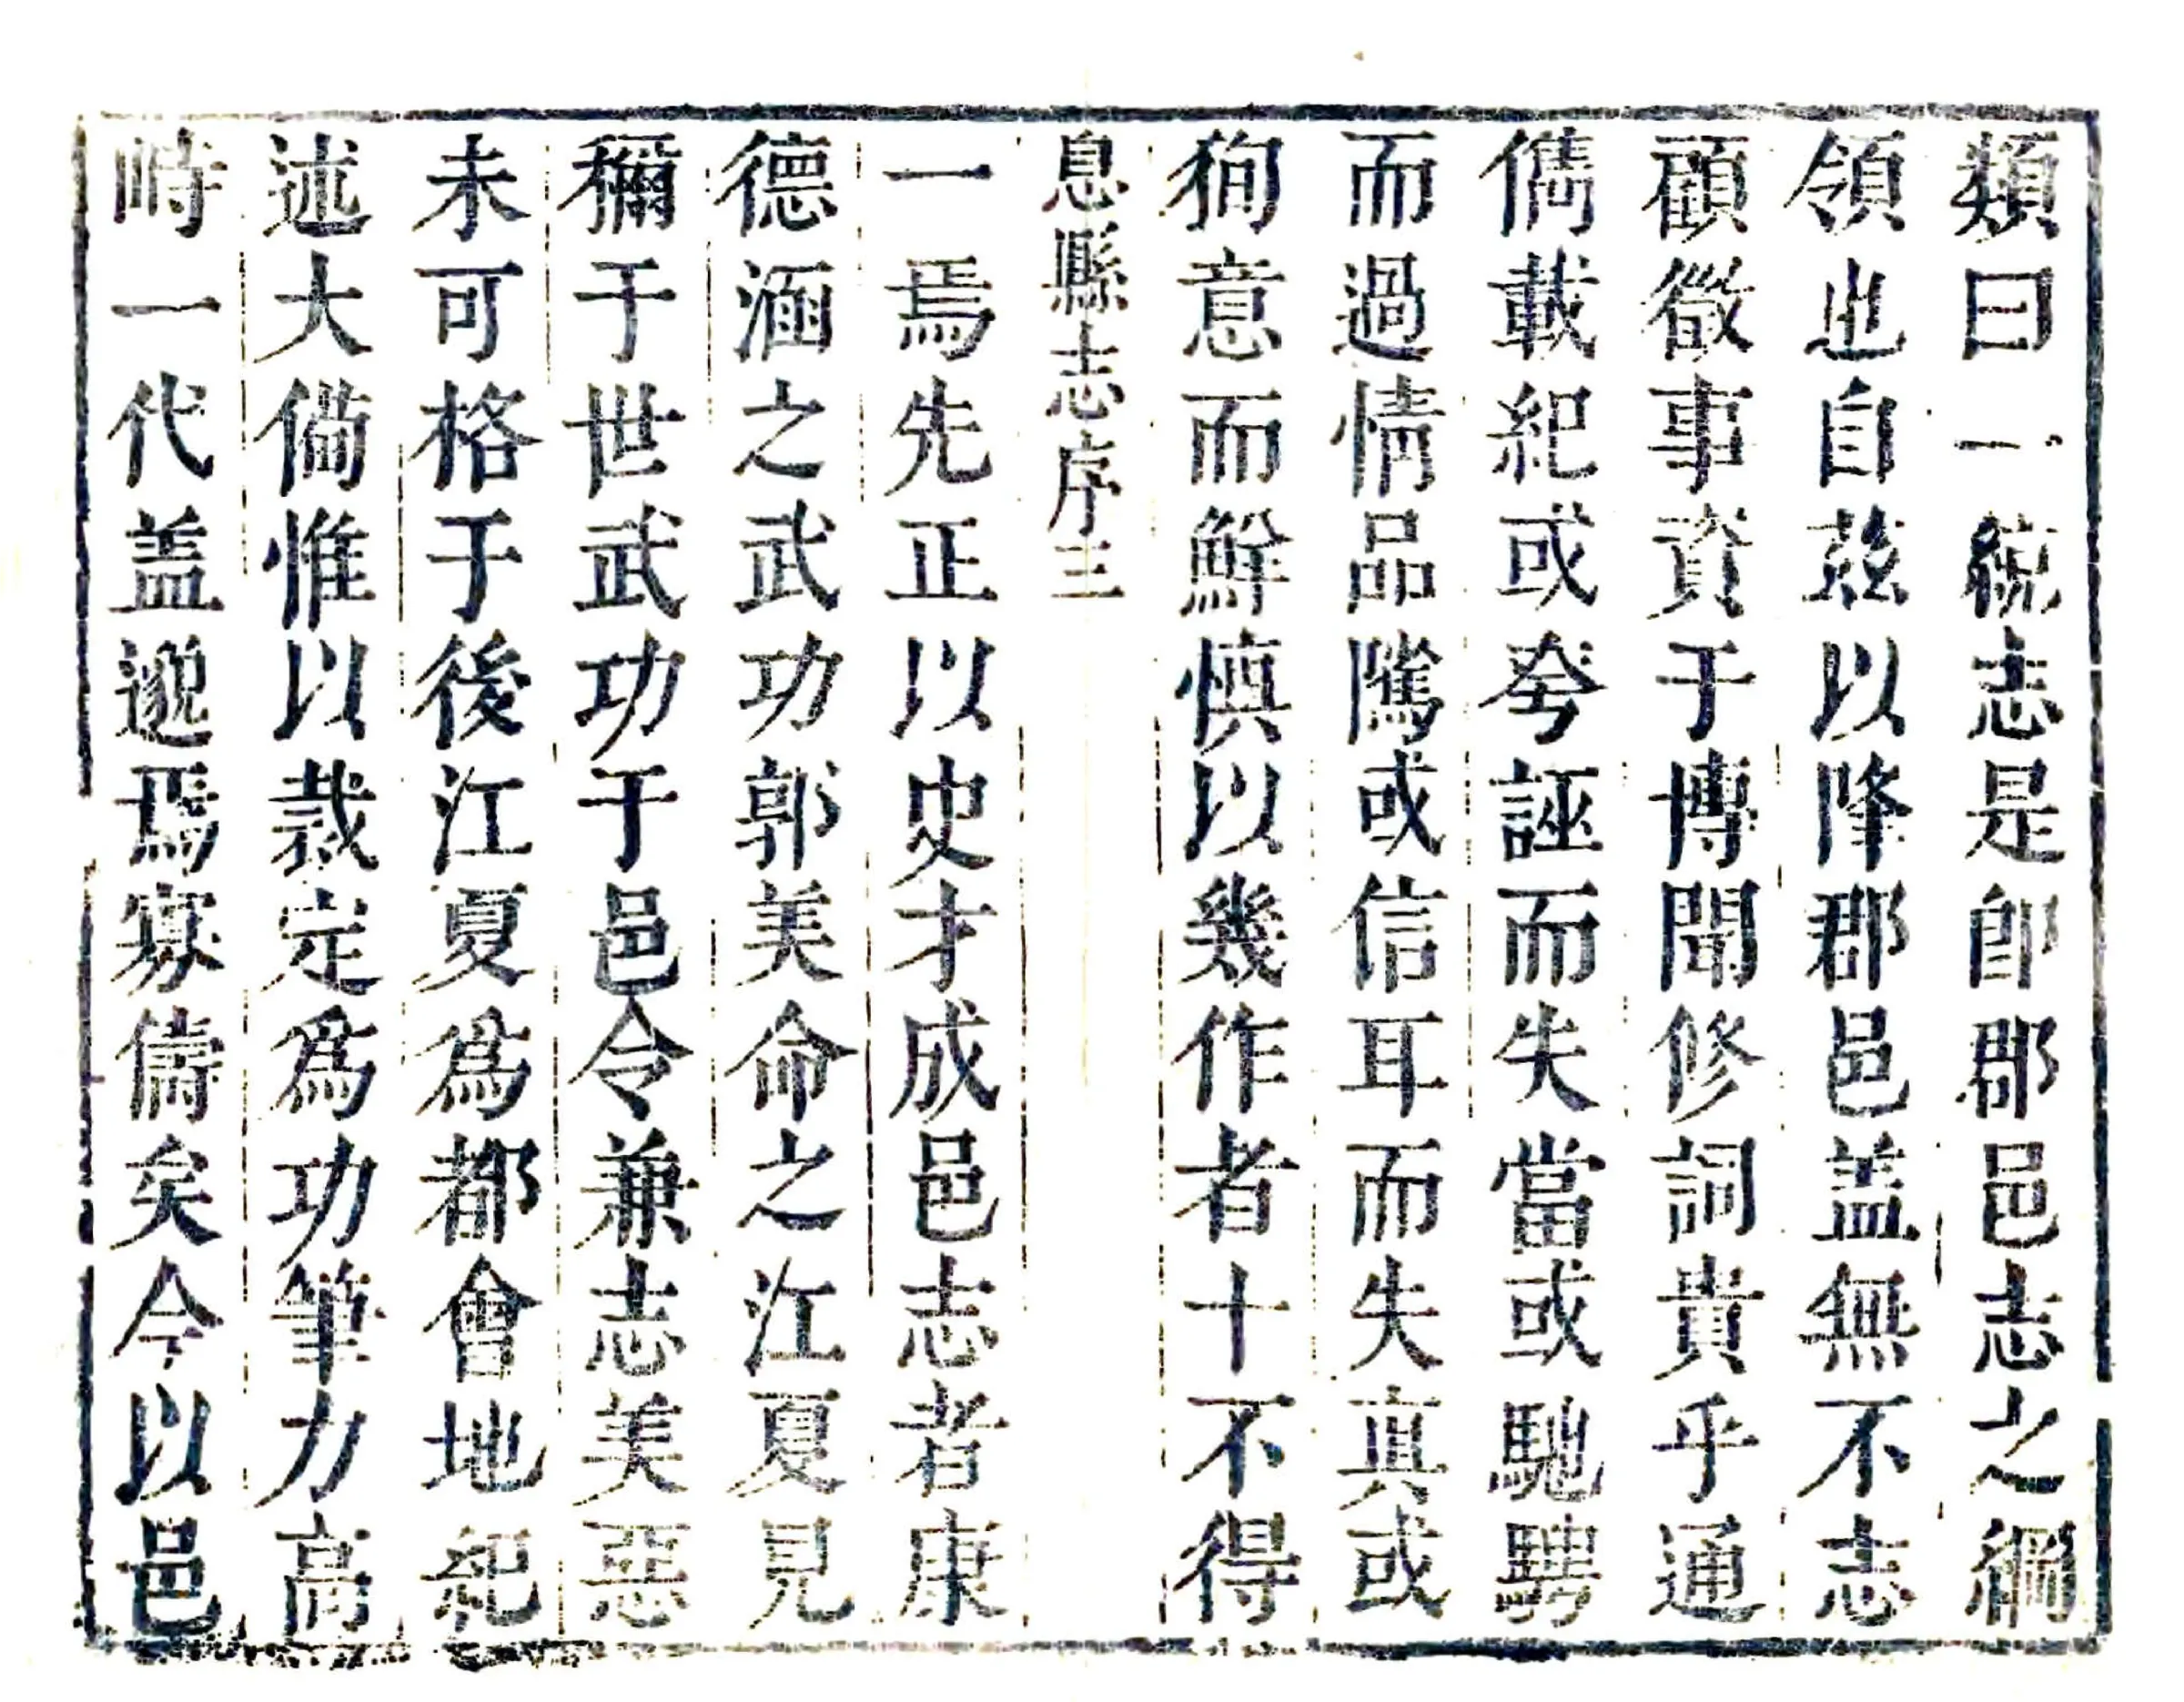 類曰一統志是卽郡邑志之綱
領也自茲以降郡邑盖無不志
顧徵事資于博聞修詞貴乎通
儁載紀或夸誣而失當或馳騁
而過情品隲或信耳而失真或
狥意而鮮慎以幾作者十不得
息縣志序三
一焉先正以史才成邑志者康
德涵之武功郭美命之江夏見
稱于世武功于邑令兼志美惡
未可格于後江夏爲都會地紀
述大備惟以裁定爲功筆力高
時一代盖邈焉寡儔矣今以邑